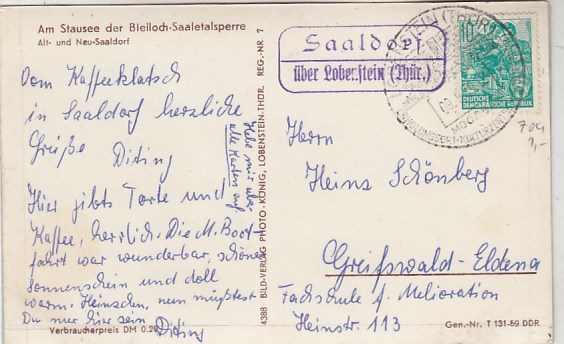 Am Stausee der Bleiloch-Saaletalsperre
Alt- und Neu-Saaldorf
Vom Kaffeeklatsch
in Saaldorf herzliche
Grüße
Hier gibts Torte und
Kaffee, herrlich. Die M. Boot-
fahrt war wunderbar, schöner
Sonnenschein und doll
warm. Heinzchen, nun müßtest
Du nur hier sein
Verbraucherpreis DM 0.20
Hebe mir
alle Karten auf
4388 BILD-VERLAG PHOTO-KÖNIG, LOBENSTEIN-THÜR. REG.-NR. 7
Saaldorf
über Lobenstein (Thür.)
10
DEUTSCHE
DEMOKRATISCHE REPUBLIK
Herrn
Heinz Schönberg
Greifswald-Eldena
Fachschule f. Melioration
Heinstr. 113
Gen.-Nr. T 131-59 DDR